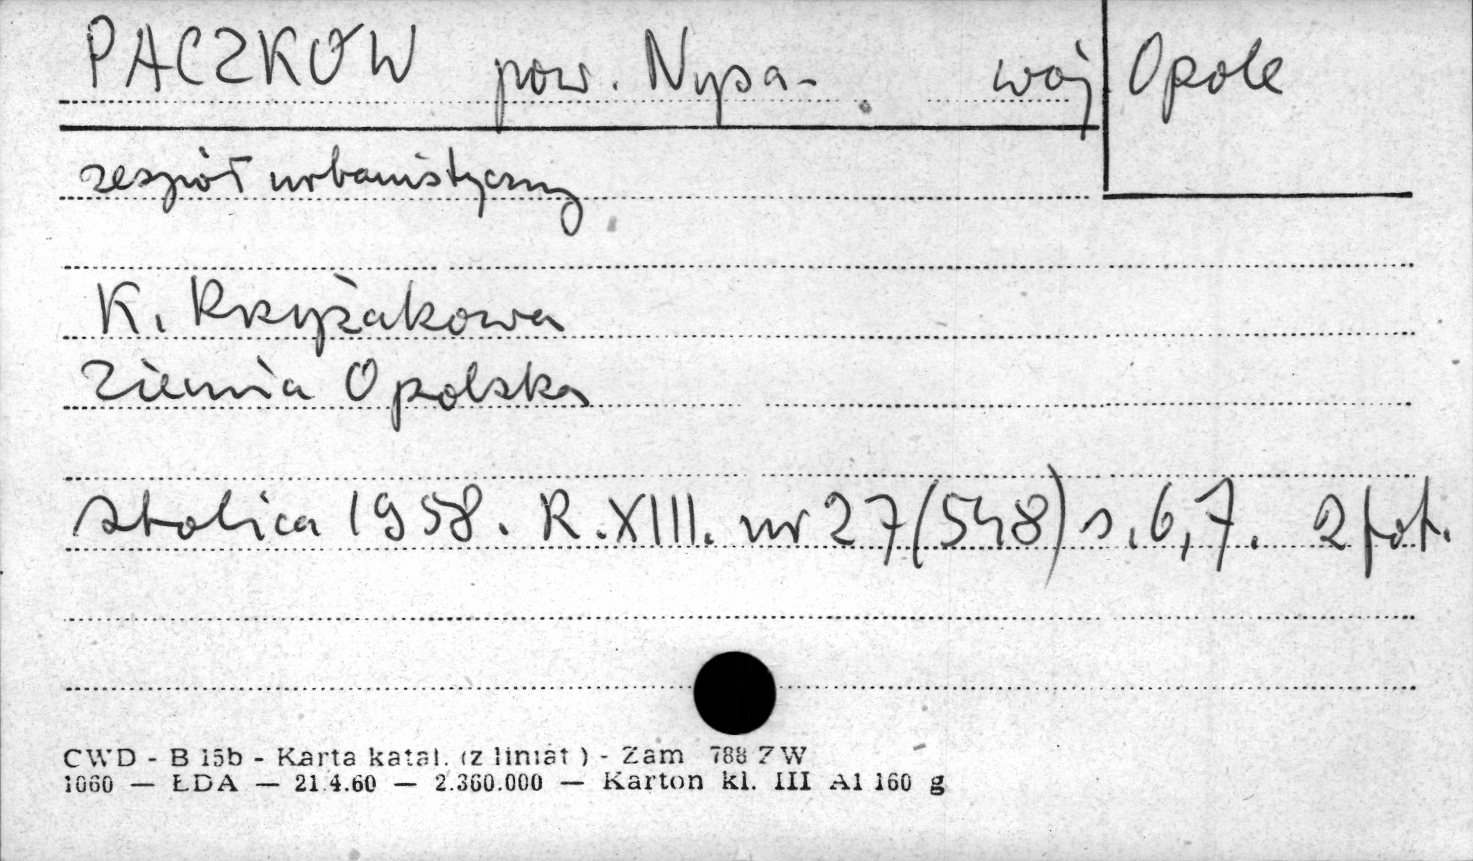 PACZKÓW pow. Nysa- woj Opole
zespół urbanistyczny
K. Krzyżakowa
Ziemia Opolska
Stolica 1958. R.XIII. nr 27(548) s.6,7. 2 fot.
CWD - B 15b - Karta katal. (z liniat ) - Zam 788 ZW
1060 — ŁDA — 21.4.60 — 2.360.000 — Karton kl. III A1 160 g